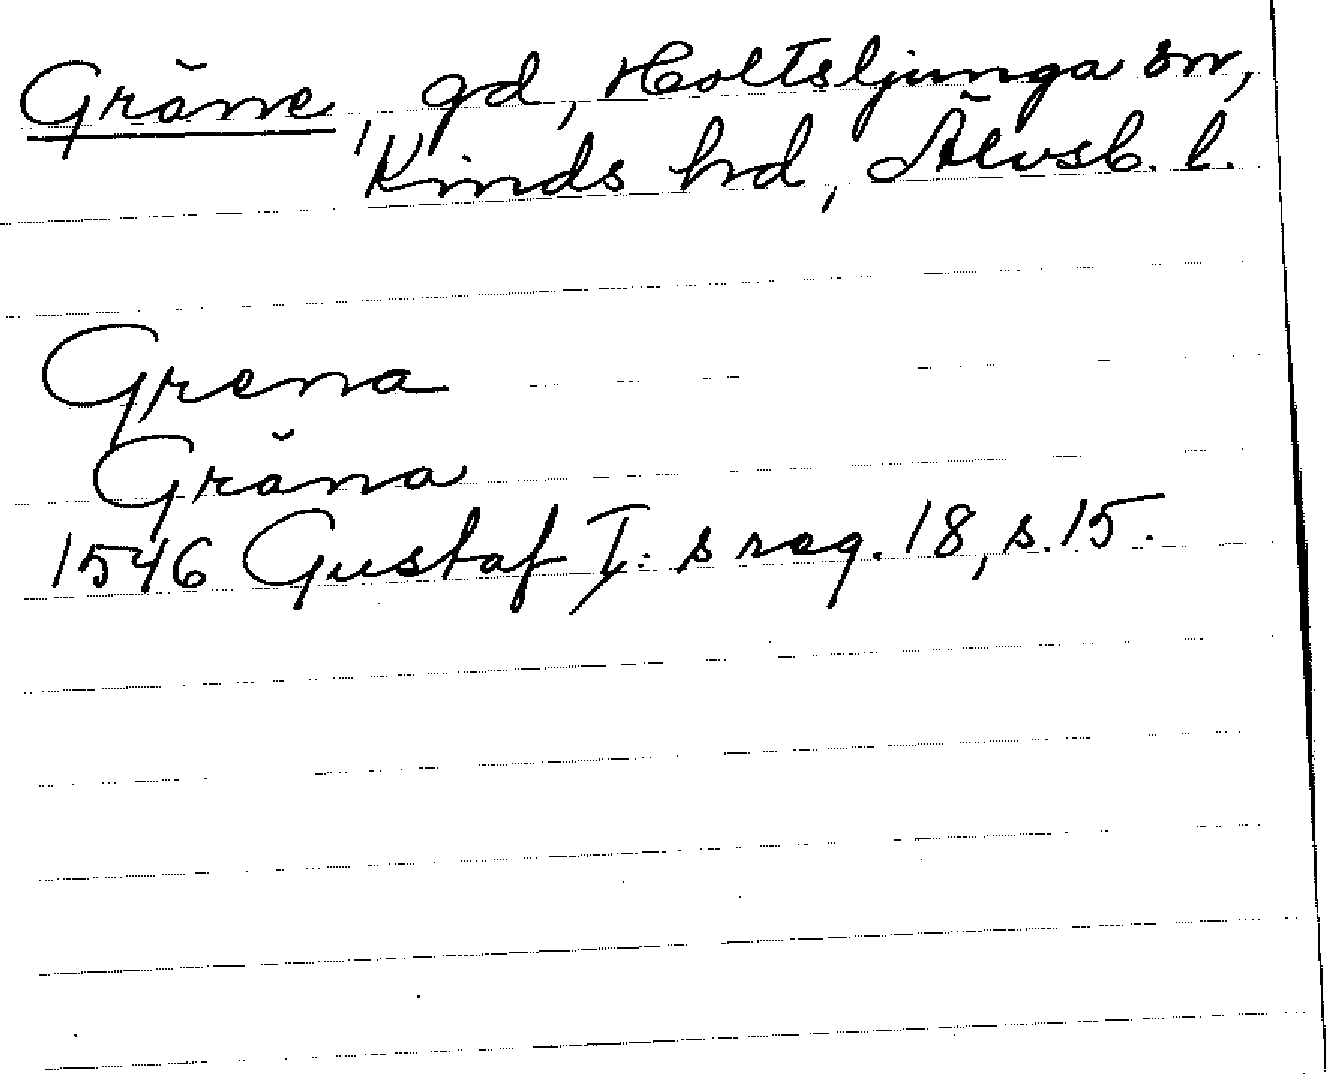 Gräne, gd, Holtsljunga sn,
Kinds hd, Älvsb. l.
Grena
Gräna
1546 Gustaf I:s reg. 18, s. 15.